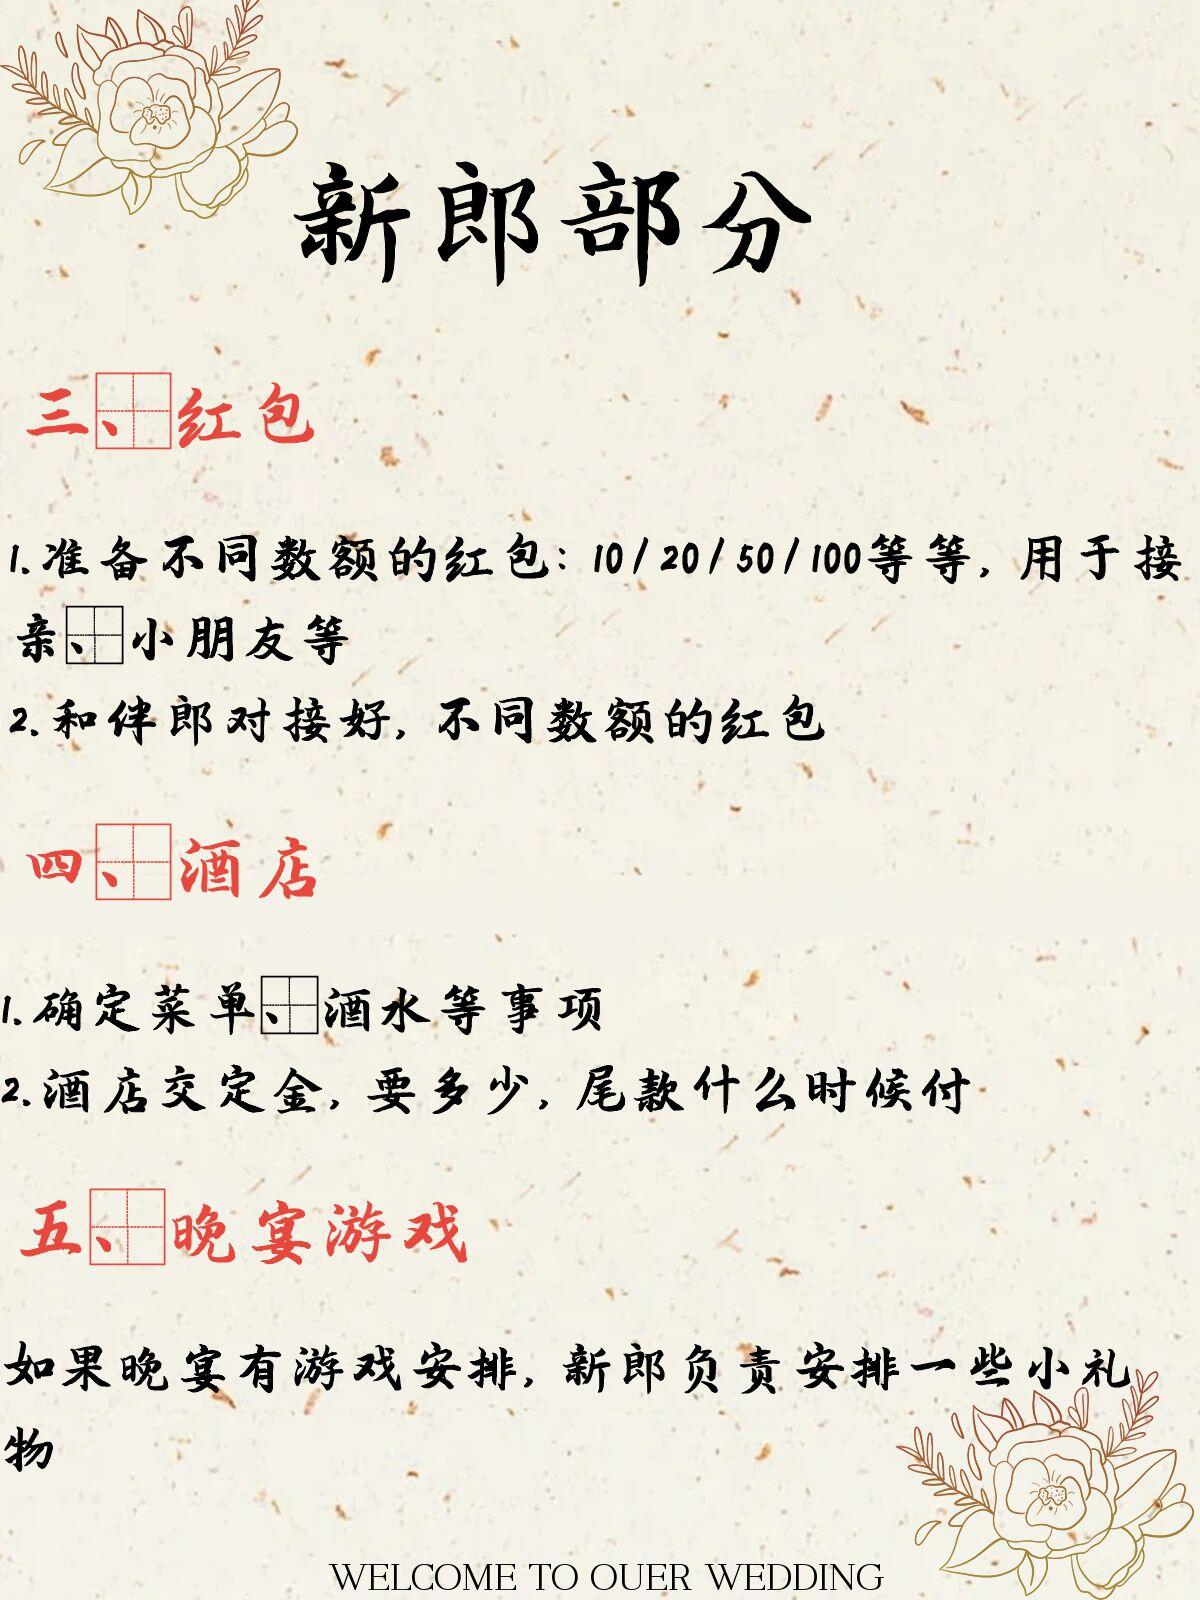 新郎部分
三、红包
1.准备不同数额的红包：10/20/50/100等等，用于接
亲、小朋友等
2.和伴郎对接好，不同数额的红包
四、酒店
1.确定菜单、酒水等事项
2.酒店交定金，要多少，尾款什么时候付
五、晚宴游戏
如果晚宴有游戏安排，新郎负责安排一些小礼
物
WELCOME TO OUER WEDDING